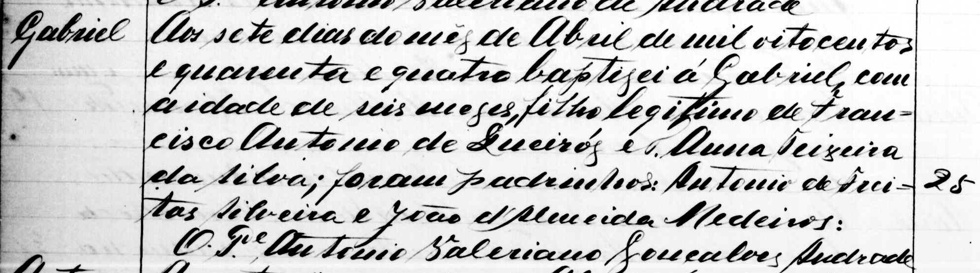 Antonio Valeriano de Andrade
Gabriel Aos sete dias do mêz de Abril de mil oitocentos
e quarenta e quatro baptizei á Gabriel, com
a idade de seis mezes, filho legitimo de Fran-
cisco Antonio de Queiróz e D. Anna Teixeira
da Silva; foram padrinhos: Antonio de Frei- 25
tas Silveira e João d'Almeida Medeiros:
O. Pe. Antonio Valeriano Gonçalves Andrade